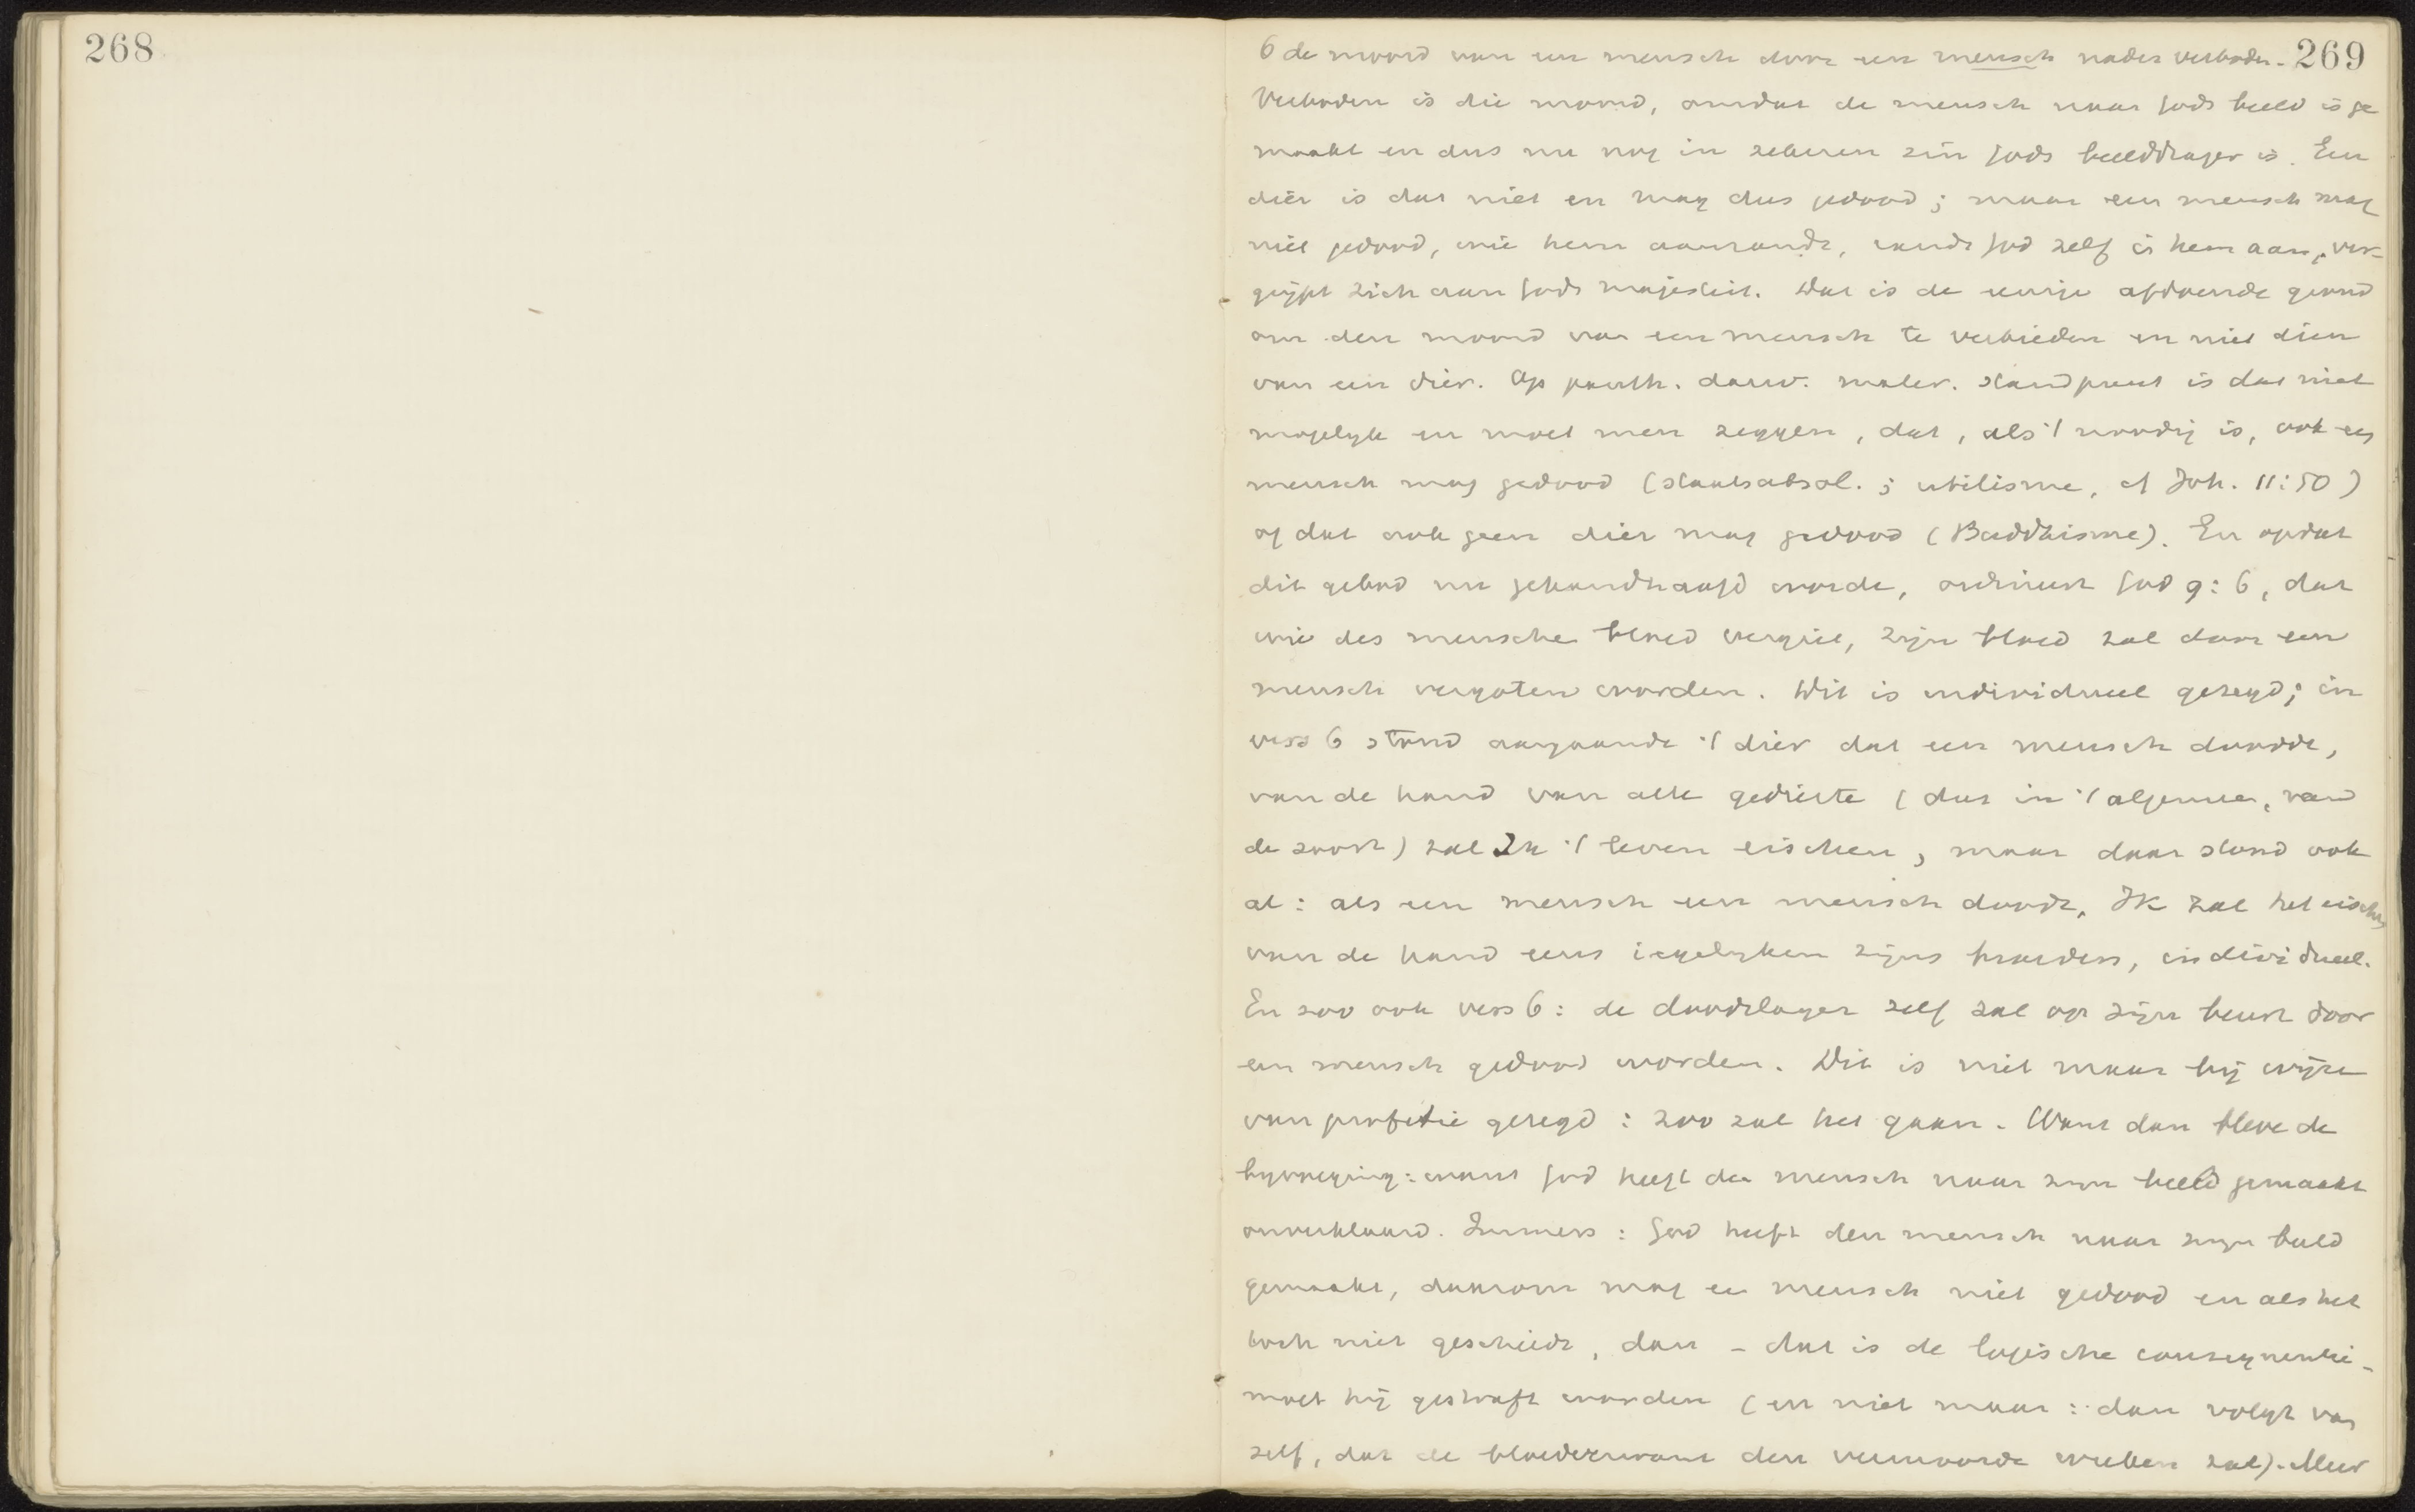 268
269
6 de moord van een mensch door een mensch nader verboden.
Verboden is die moord, omdat de mensch naar Gods beeld is ge
maakt en dus nu nog in zekeren zin Gods beelddrager is. Een
dier is dat niet en mag dus gedood; maar een mensch mag
niet gedood, wie hem aanrandt, randt God zelf in hem aan, ver-
grijpt zich aan Gods majesteit. Dat is de eenige afdoende grond
om den moord van een mensch te verbieden en niet dien
van een dier. Op panth. darw. mater. standpunt is dat niet
mogelijk en moet men zeggen, dat, als 't noodig is, ook een
mensch mag gedood (staatsabsol.; utilisme, cf Joh. 11:50)
of dat ook geen dier mag gedood (Buddhisme). En opdat
dit gebod nu gehandhaafd worde, ordineert God 9:6, dat
wie des menschen bloed vergiet, zijn bloed zal door een
mensch vergoten worden. Dit is individueel gezegd; in
vers 6 stond aangaande 't dier dat een mensch doodde,
van de hand van alle gedierte (dus in 't algemeen, van
de soort) zal Ik 't leven eischen, maar daar stond ook
al: als een mensch een mensch doodt, Ik zal het eischen
van de hand eens iegelijken zijns broeders, individueel.
En zoo ook vers 6: de doodslager zelf zal op zijn beurt door
een mensch gedood worden. Dit is niet maar bij wijze
van profetie gezegd: zoo zal het gaan. Want dan bleve de
bijvoeging: want God heeft den mensch naar zijn beeld gemaakt
onverklaard. Immers: God heeft den mensch naar zijn beeld
gemaakt, daarom mag een mensch niet gedood en als het
toch niet geschiedt, dan - dat is de logische consequentie -
moet hij gestraft worden (en niet maar: dan volgt van
zelf, dat de bloedverwant den vermoorde wreken zal). Meer